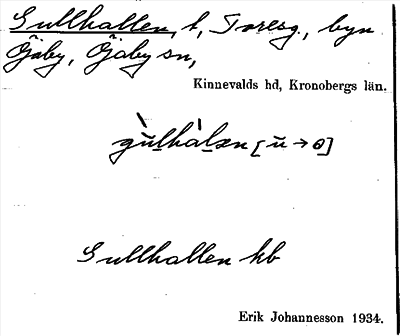 Gullhallen, t, Toresg, byn
Öjaby, Öjaby sn,
Kinnevalds hd, Kronobergs län.
gùlhálən [ū→ө]
Gullhallen kb
Erik Johannesson 1934.